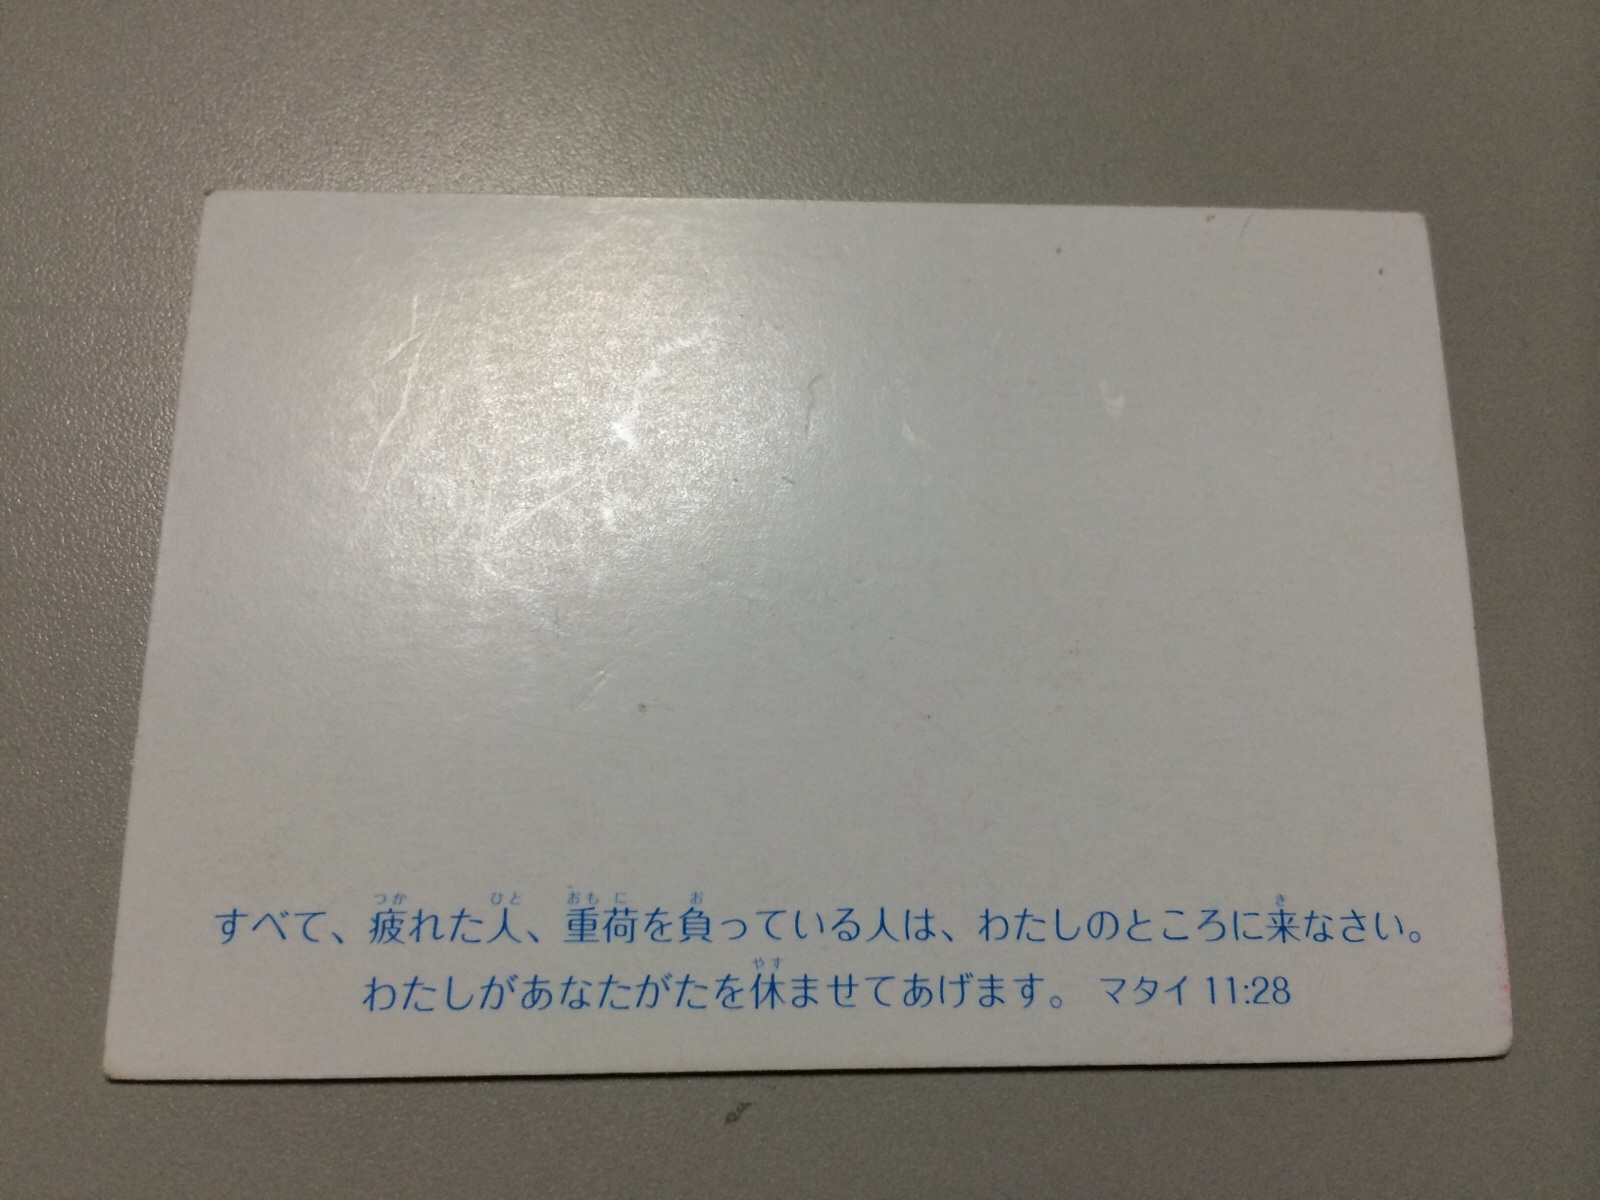 すべて、疲れた人、重荷を負っている人は、わたしのところに来なさい。
わたしがあなたがたを休ませてあげます。 マタイ 11:28